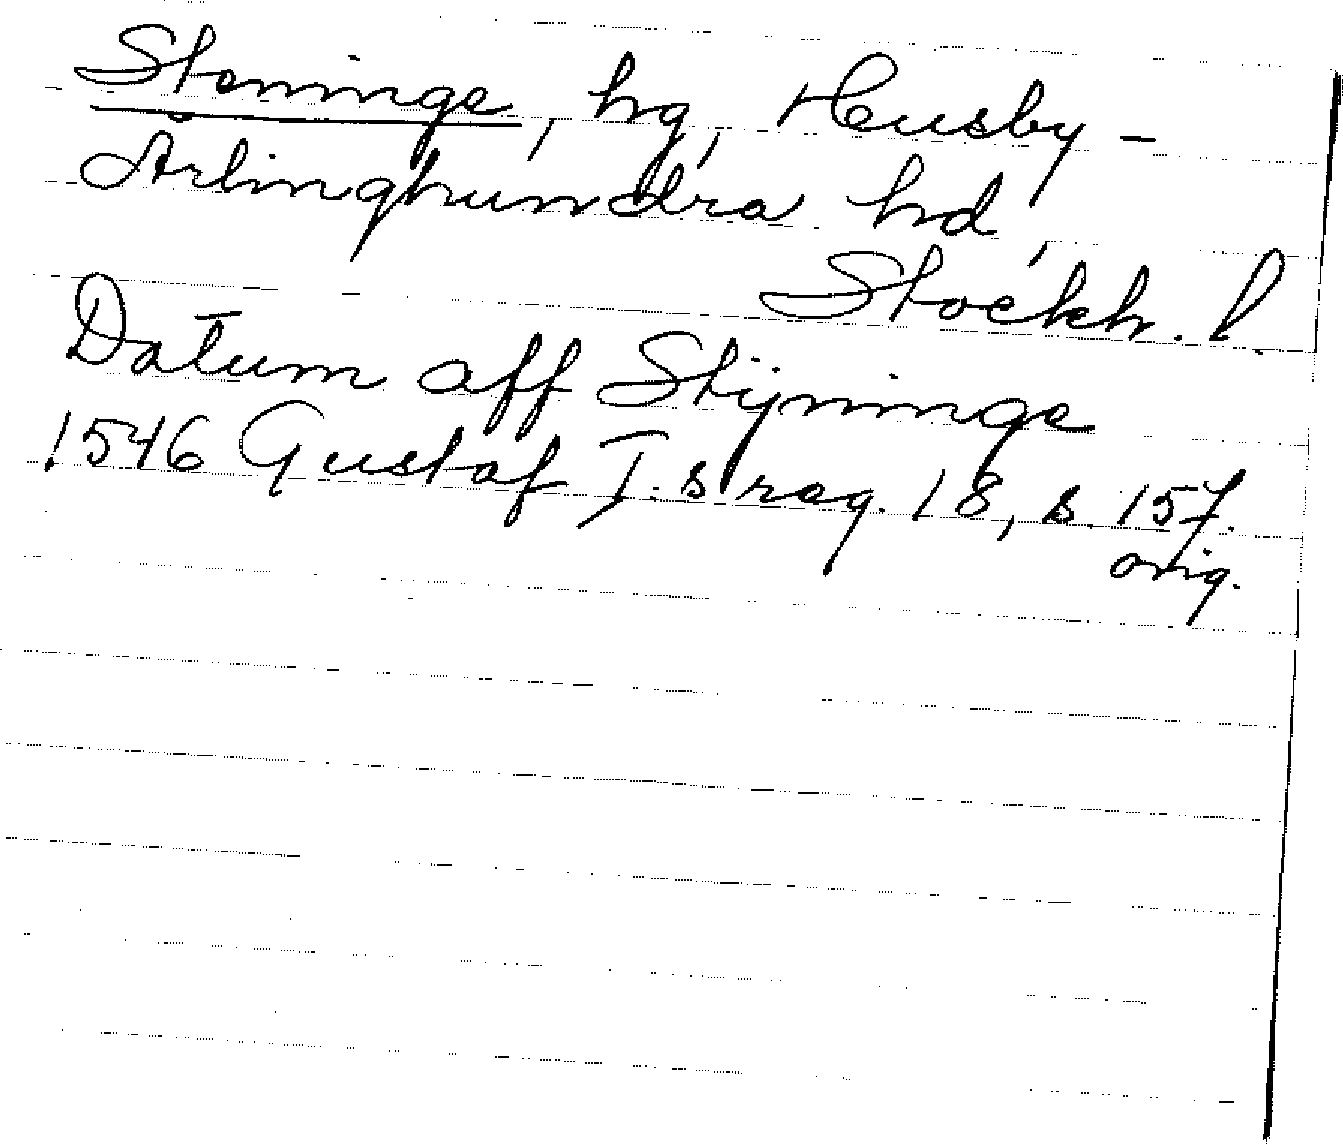 Steninge, hg, Husby-
Ärlinghundra hd,
Stockh. l.
Datum aff Stijninge
1546 Gustaf I.s reg. 18, s. 157.
orig.